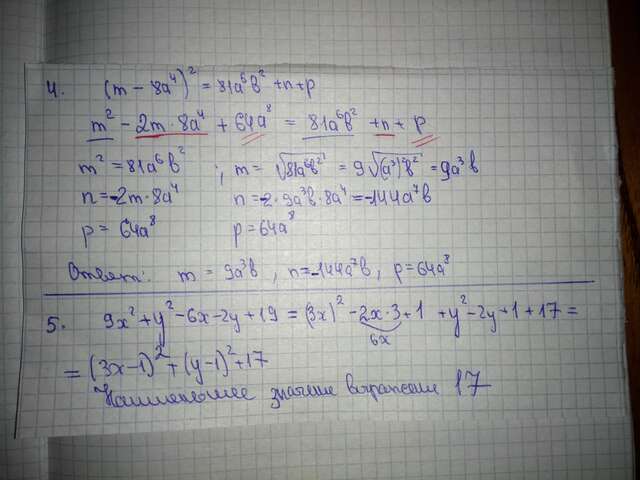 4. (m - 8a⁴)² = 81a⁶b² + n + p
m² - 2m·8a⁴ + 64a⁸ = 81a⁶b² + n + p
m² = 81a⁶b² ; m = √81a⁶b² = 9√(a³)²b² = 9a³b
n = -2m·8a⁴ n = -2·9a³b·8a⁴ = -144a⁷b
p = 64a⁸ p = 64a⁸
Ответ: m = 9a³b, n = -144a⁷b, p = 64a⁸
5. 9x² + y² - 6x - 2y + 19 = (3x)² - 2x·3 + 1 + y² - 2y + 1 + 17 =
6x
= (3x-1)² + (y-1)² + 17
Наименьшее значение выражения 17